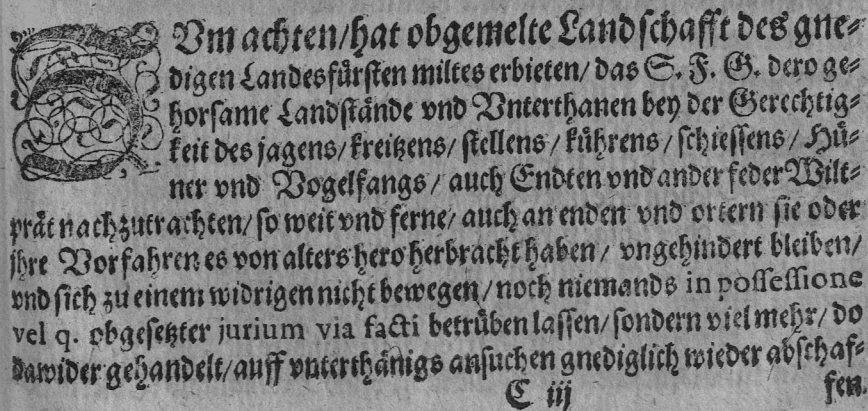 ZUm achten/hat obgemelte Landschafft des gne⸗
digen Landesfürsten miltes erbieten/ das S. F. G. dero ge⸗
horsame Landstände vnd Vnterthanen bey der Gerechtig⸗
keit des jagens/ kreitzens/ stellens/ kührens/ schiessens/ Hü⸗
ner vnd Vogelfangs/ auch Endten vnd ander feder Wilt⸗
prät nachzutrachten/ so weit vnd ferne/ auch an enden vnd ortern sie oder
jhre Vorfahren es von alters hero herbracht haben/ vngehindert bleiben/
vnd sich zu einem widrigen nicht bewegen/ noch niemands in possessione
vel q. obgesetzter jurium via facti betrüben lassen/ sondern viel mehr/ do
dawider gehandelt/ auff vnterthänigs ansuchen gnediglich wieder abschaf⸗
C iij fen.